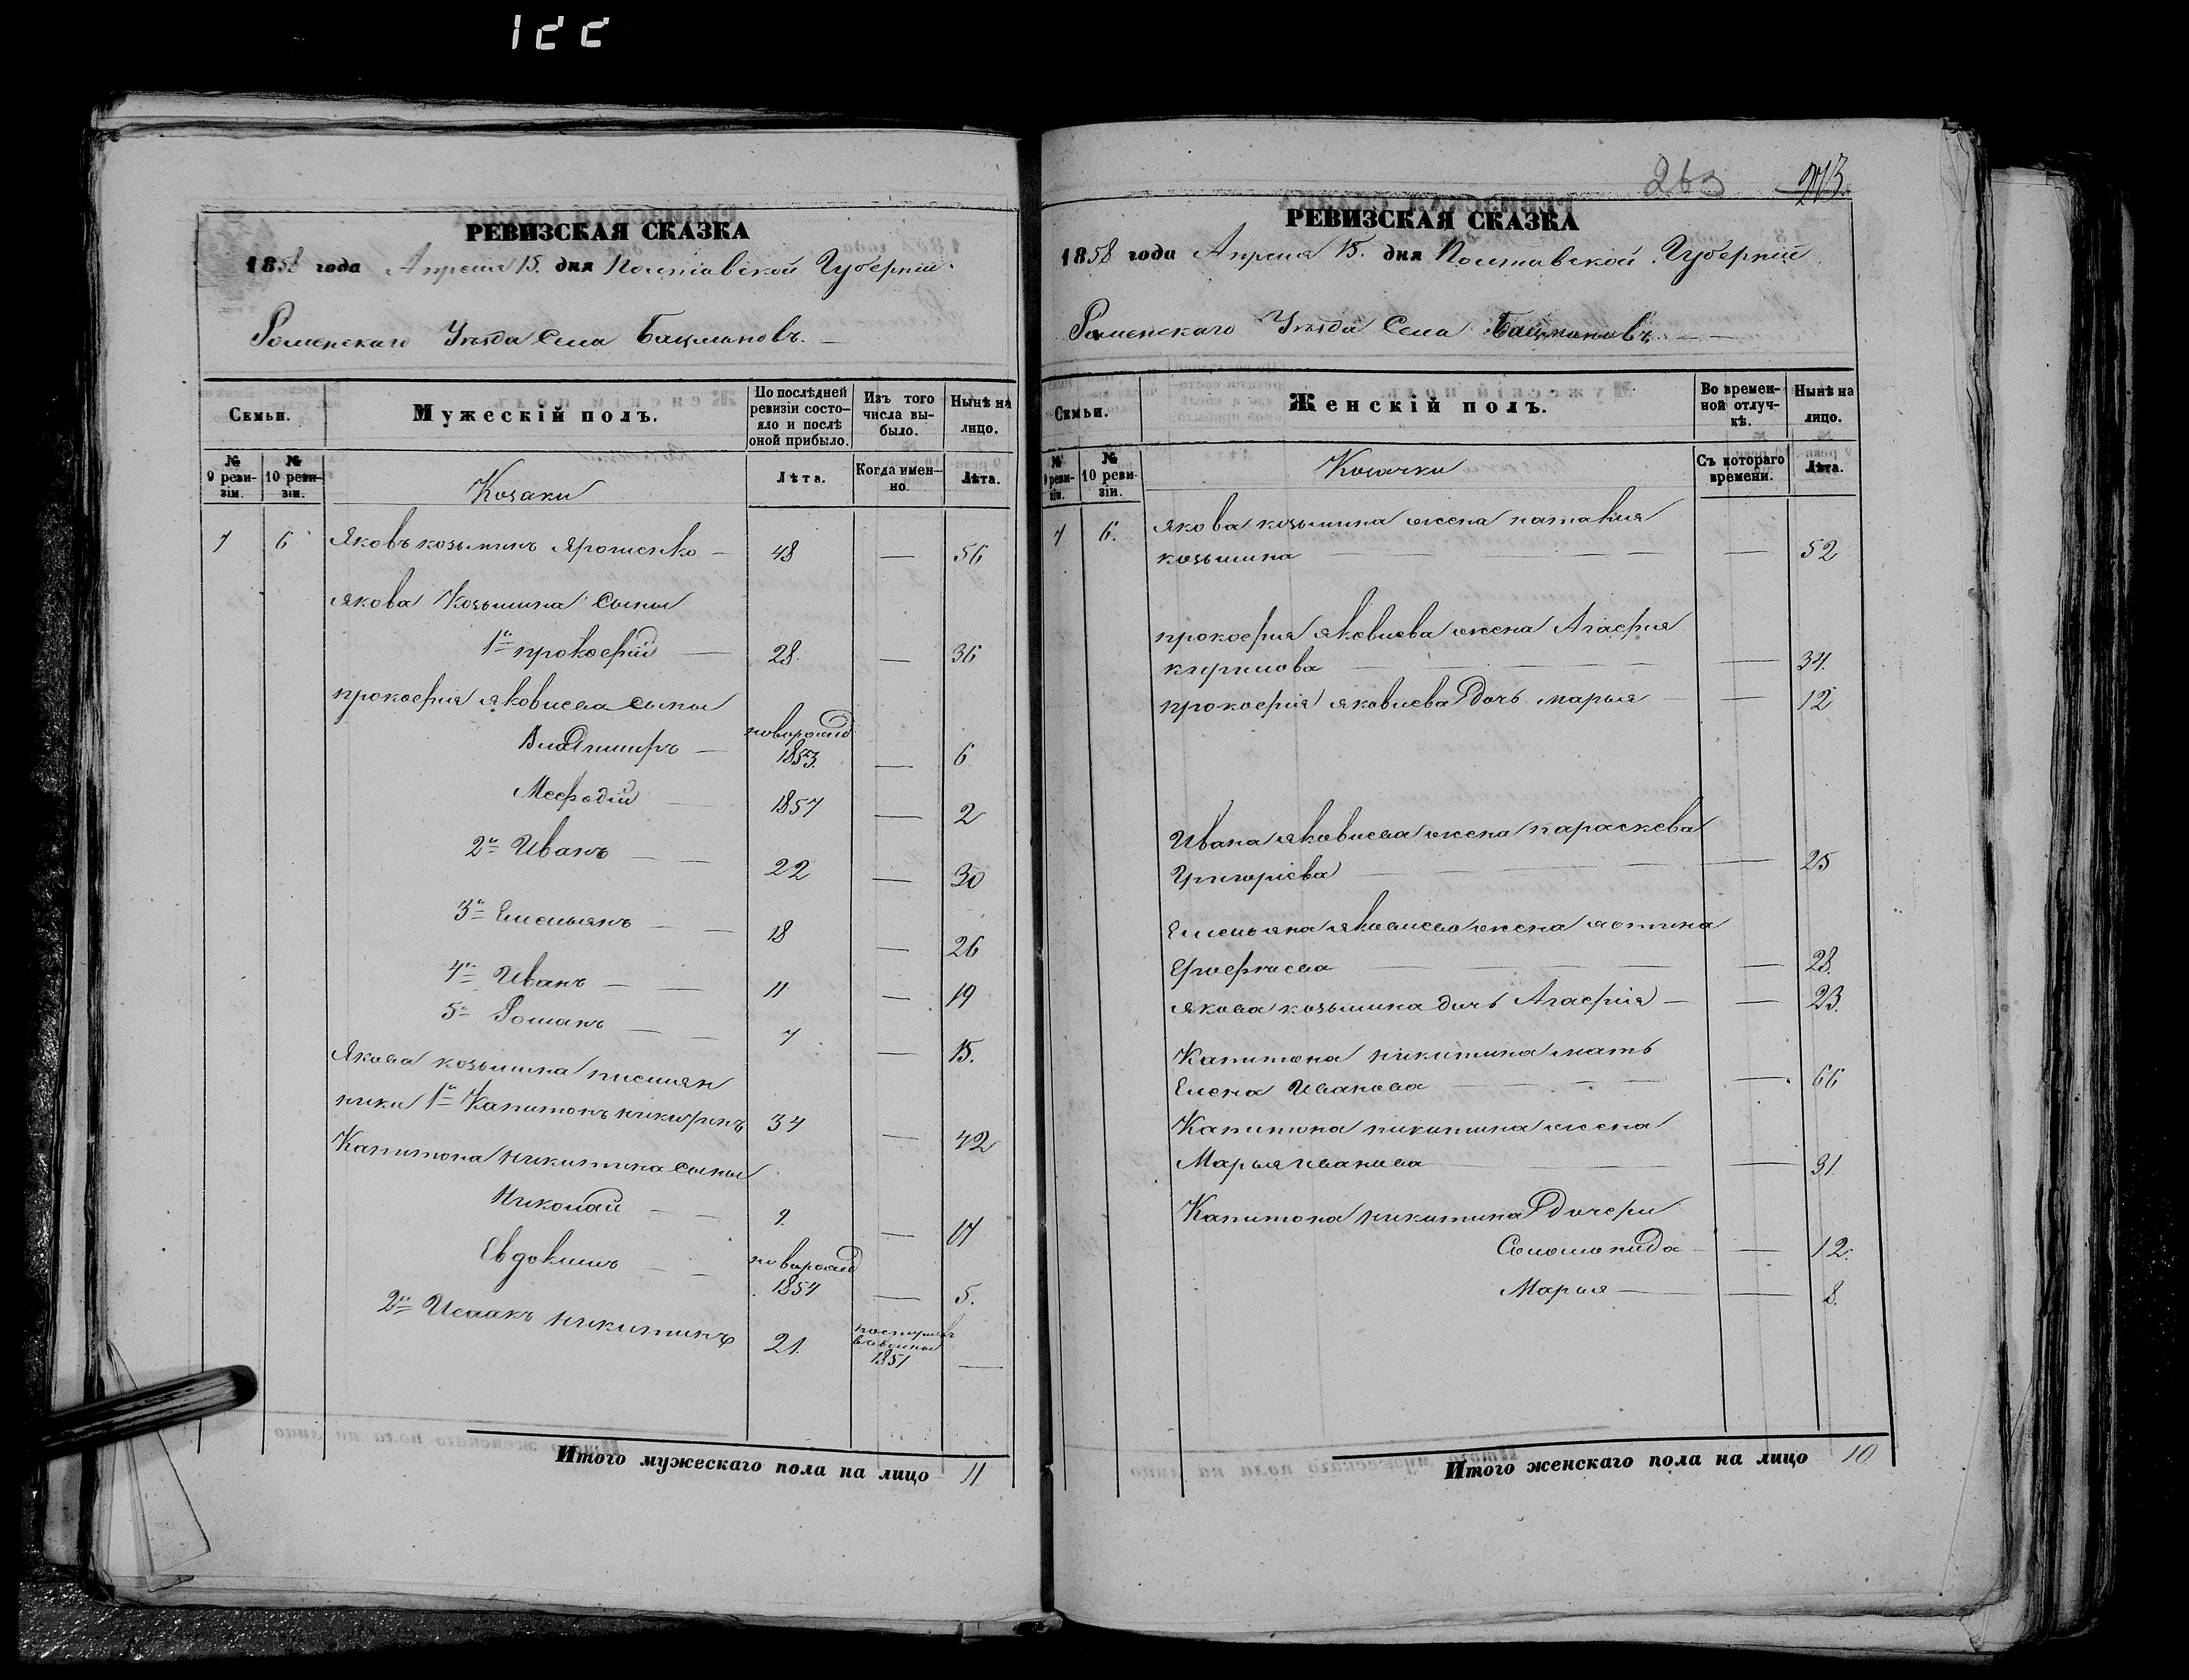 122
РЕВИЗСКАЯ СКАЗКА
1858 года Апреля 15. дня Полтавской Губерніи
Роменскаго Уѣзда Села Бацмановъ.
Семьи.
Мужескій полъ.
По послѣдней ревизіи состояло и послѣ оной прибыло.
Изъ того числа выбыло.
Нынѣ на лицо.
№ 9 ревизіи.
№ 10 ревизіи.
Козаки
Лѣта.
Когда именно.
Лѣта.
7 6 Яковъ козьминъ Ярошенко — 48 — 56
Якова Козьмина Сыны
1й прокофій — 28. — 36
прокофія яковлева сыны
Владимиръ — новорожд 1853. — 6
Мефодій — 1857 — 2
2й Иванъ — — 22 — 30
3й Емельянъ — — 18 — 26
4й Иванъ — — 11 — 19
5й Романъ — — 7 — 15.
Якова козьмина племян
ники 1й Капитонъ никитинъ 34 — 42
Капитона никитина сыны
Николай — — 9. — 17
Евдокимъ — — новорожд 1854 — 5.
2й Исаакъ никитинъ 21. 1851 —
Итого мужескаго пола на лицо 11
263 273.
РЕВИЗСКАЯ СКАЗКА
1858 года Апреля 15. дня Полтавской Губерніи
Роменскаго Уѣзда Села Бацмановъ. — —
Семьи.
Женскій полъ.
Во временной отлучкѣ.
Нынѣ на лицо.
№ 9 ревизіи.
№ 10 ревизіи.
Козачки
Съ котораго времени.
Лѣта.
7 6. Якова козьмина жена наталия
козьмина — — — — 52
прокофия яковлева жена Агафия
кирилова — — — — 34.
прокофія яковлева дочь марья — — 12
Ивана яковлева жена параскева
Григоріева — — — — 25
Емельяна яковлева жена
— — — — 28.
якова козьмина дочь Агафия — — 23.
Капитона никитина мать
Елена Иванова — — — — 66
Капитона никитина жена
Марья иванова — — — 31.
Капитона никитина дочери
Соломонида — — 12.
Марья — — 8.
Итого женскаго пола на лицо 10